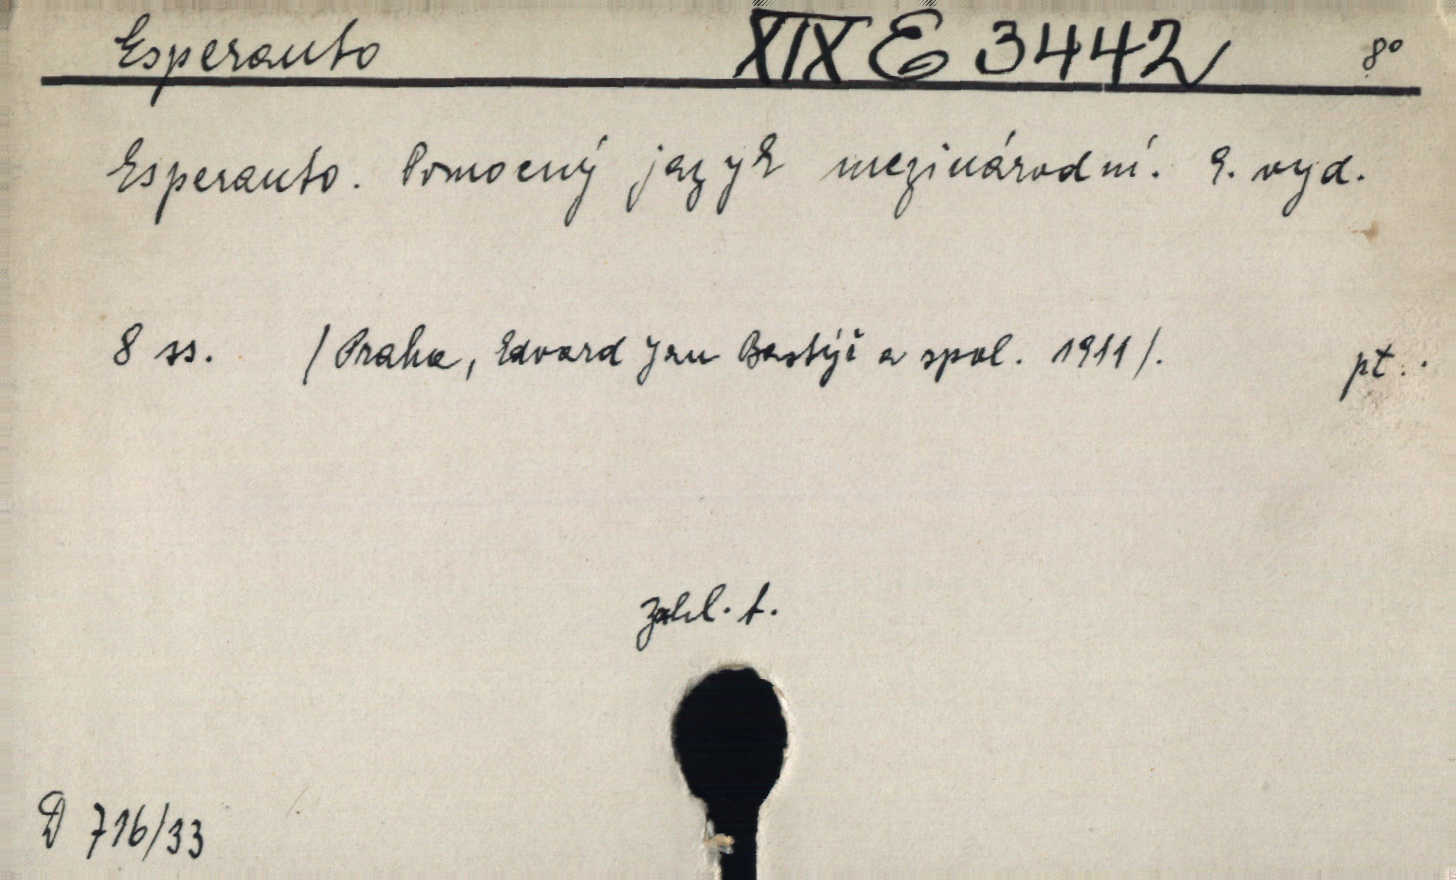 Esperanto XIX E 3442 8°
Esperanto. Pomocný jazyk mezinárodní. 9. vyd.
8 ss. /Praha, Edvard Jan Baštýř a spol. 1911/. pt.
zákl. t.
D 716/33